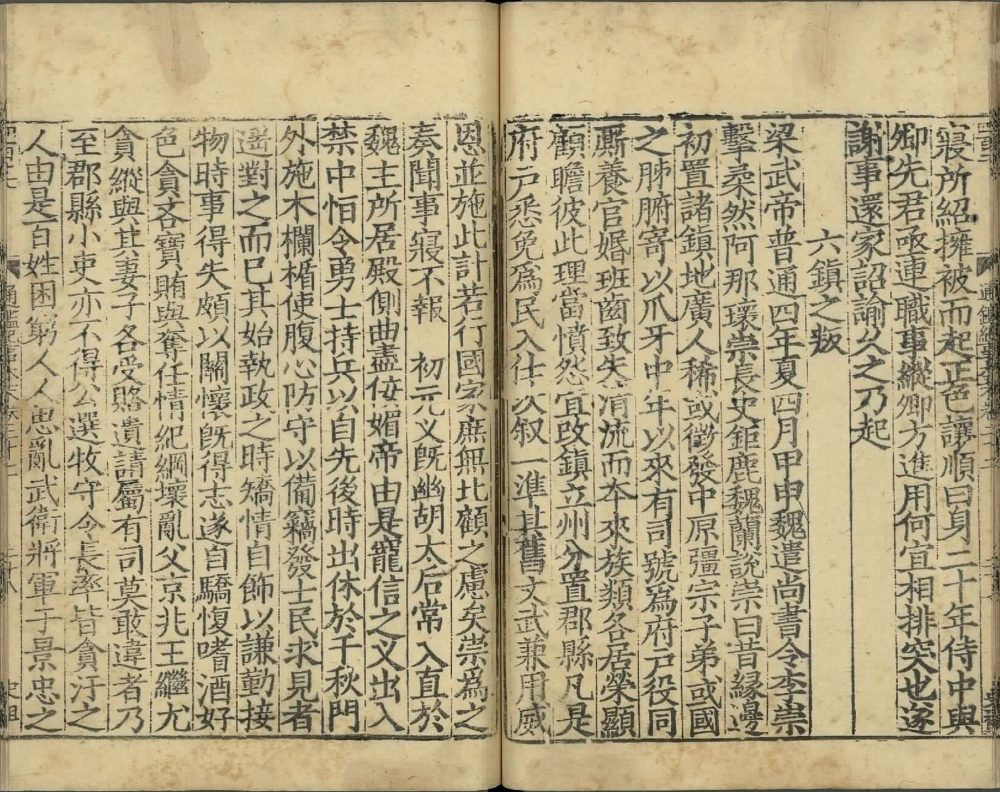 寢所紹擁被而起正色讓順曰身二十年侍中與
卿先君亟連職事縱卿方進用何宜相排突也遂
謝事還家詔諭久之乃起
六鎮之叛
梁武帝普通四年夏四月甲申魏遣尚書令李崇
擊柔然阿那瓌崇長史鉅鹿魏蘭說崇曰昔緣邊
初置諸鎮地廣人稀或徵發中原彊宗子弟或國
之肺腑寄以爪牙中年以來有司號為府戶役同
廝養官婚班齒致失清流而本來族類各居榮顯
顧瞻彼此理當憤怨宜改鎮立州分置郡縣凡是
府戶悉免為民入仕次敘一準其舊文武兼用威
恩並施此計若行國家庶無北顧之慮矣崇為之
奏聞事寢不報 初元义既幽胡太后常入直於
魏主所居殿側曲盡佞媚帝由是寵信之义出入
禁中恒令勇士持兵以自先後時出休於千秋門
外施木欄楯使腹心防守以備竊發士民求見者
遙對之而已其始執政之時矯情自飾以謙勤接
物時事得失頗以關懷既得志遂自驕愎嗜酒好
色貪吝寶賄與奪任情紀綱壞亂父京兆王繼尤
貪縱與其妻子各受賂遺請屬有司莫敢違者乃
至郡縣小吏亦不得公選牧守令長率皆貪汙之
人由是百姓困窮人人思亂武衛將軍于景忠之